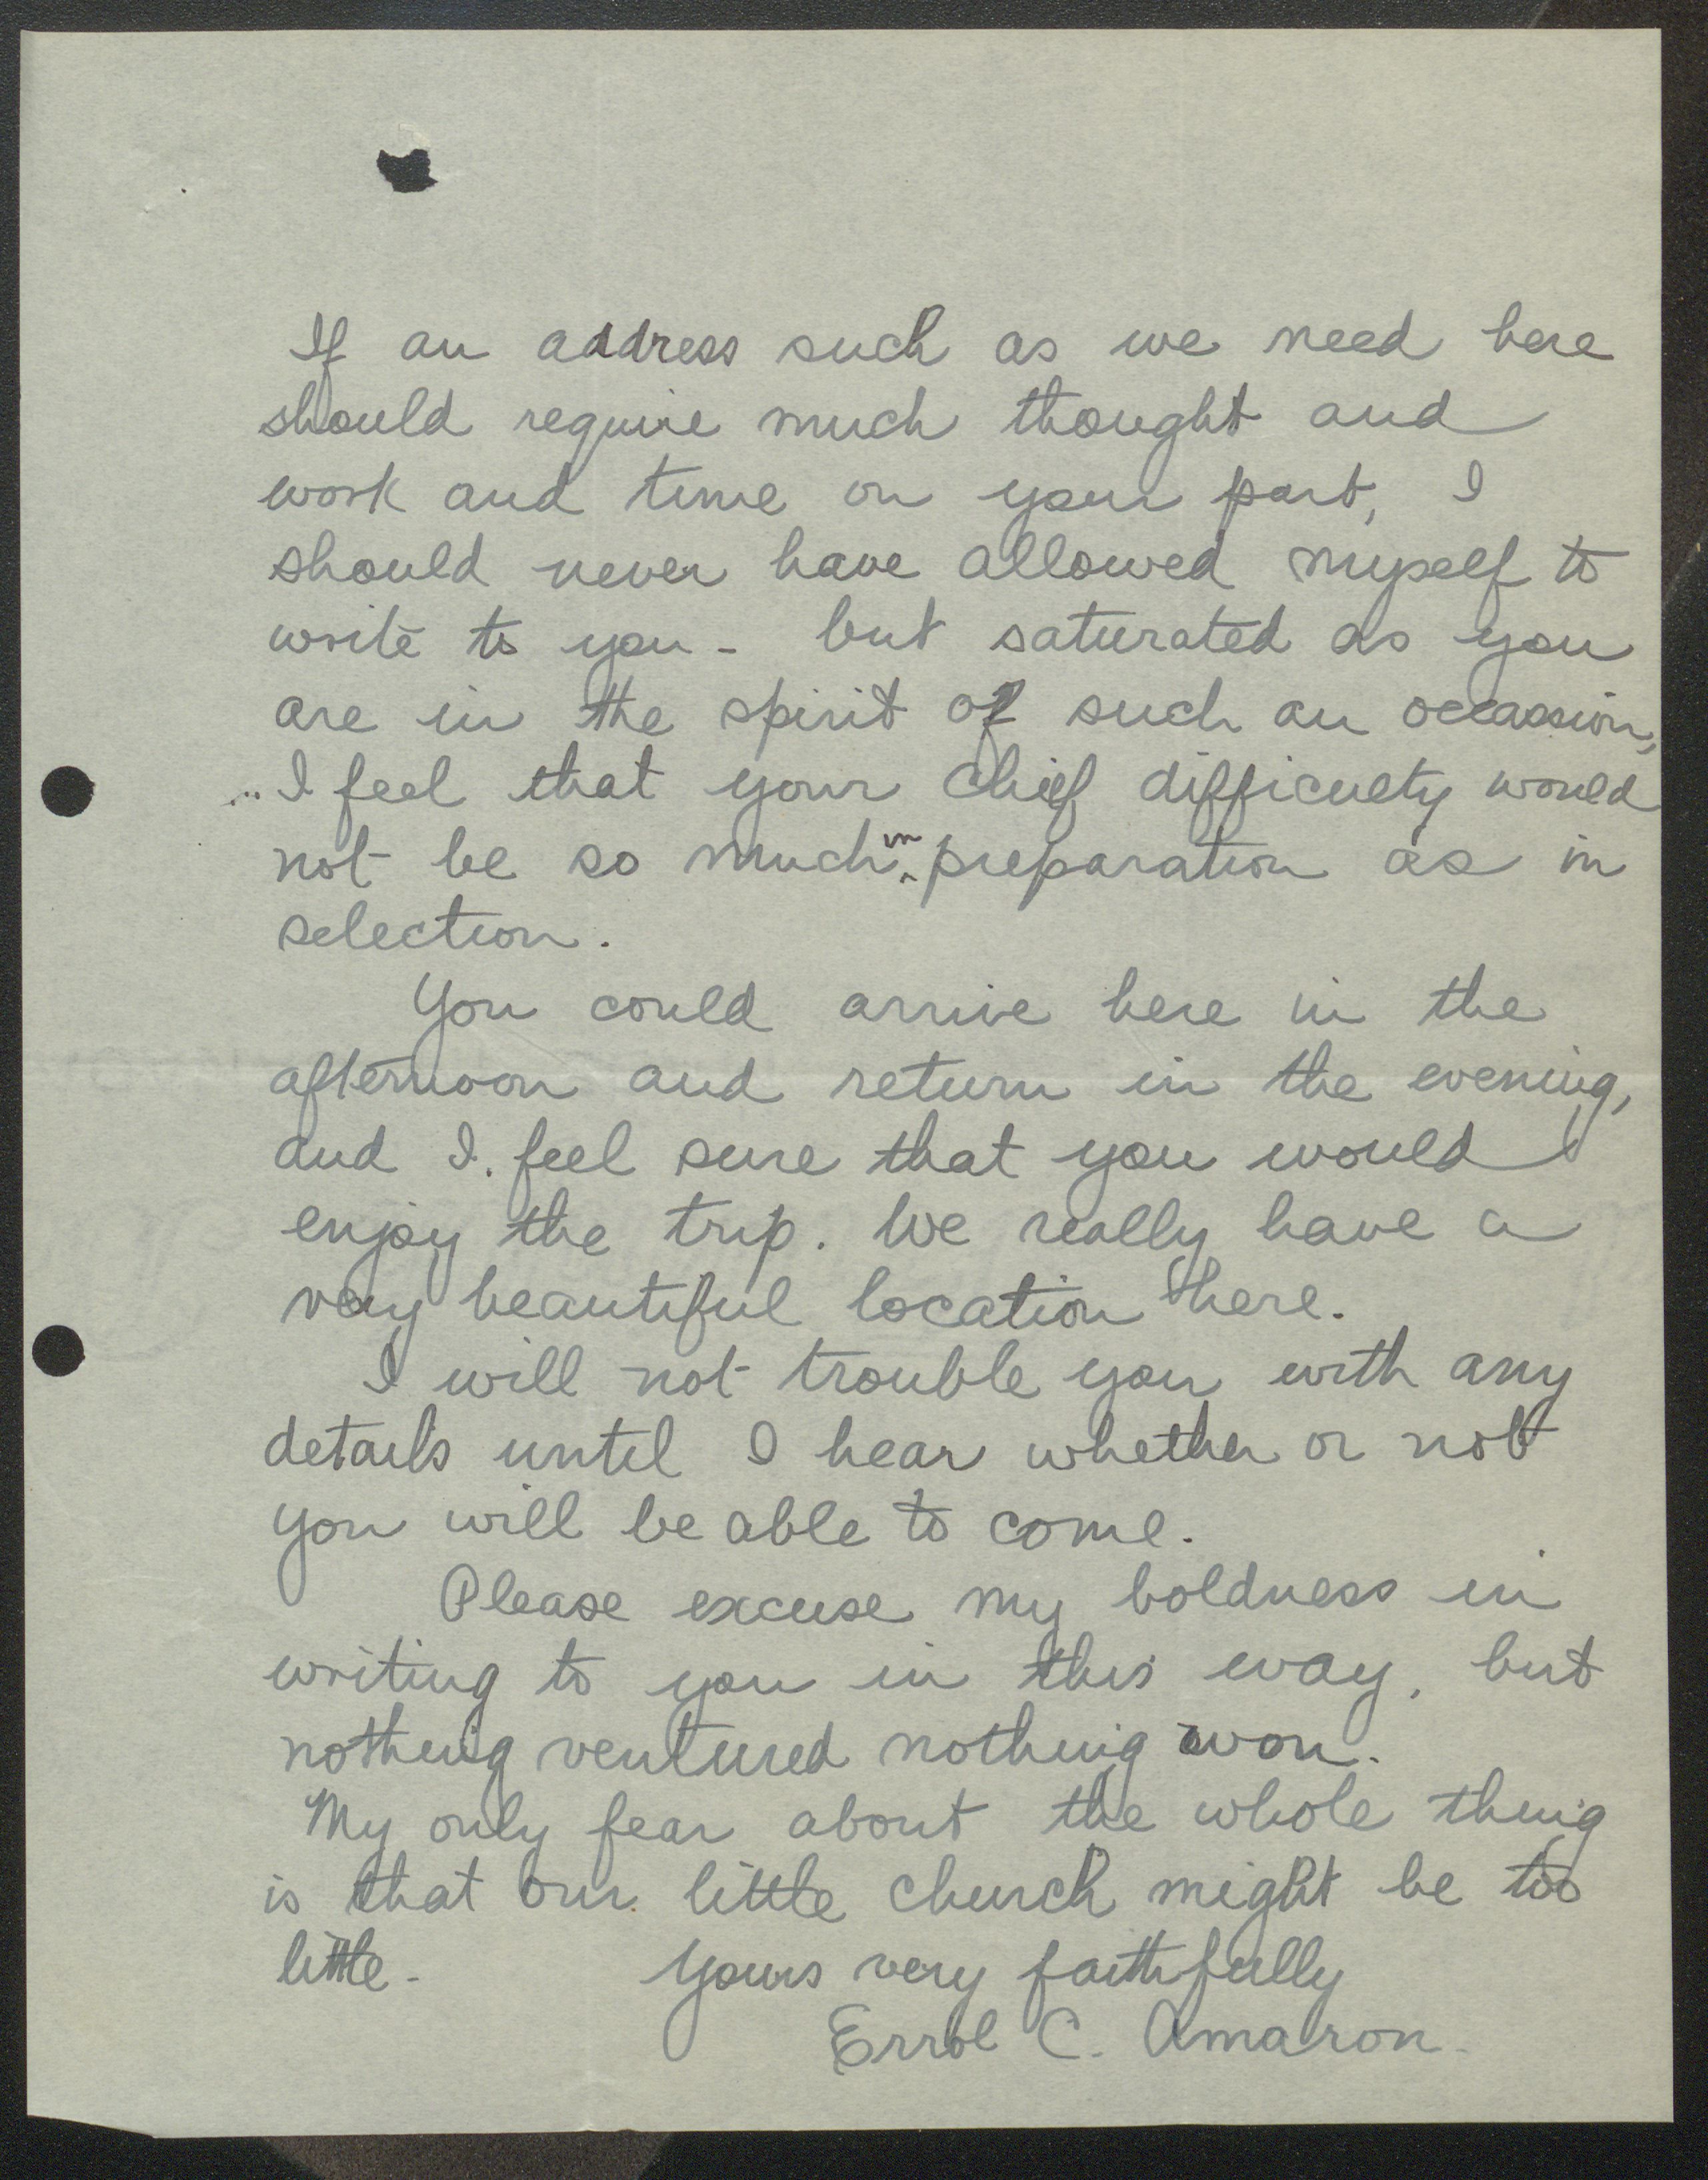 If an address such as we need here
should require much thought and
work and time on your part, I
should never have allowed myself to
write to you - but saturated as you
are in the spirit of such an occassion,
I feel that your chief difficulty would
not be so much in preparation as in
selection.
You could arrive here in the
afternoon and return in the evening,
and I feel sure that you would
enjoy the trip. We really have a
very beautiful location here.
I will not trouble you with any
details until I hear whether or not
you will be able to come.
Please excuse my boldness in
writing to you in this way, but
nothing ventured nothing won.
My only fear about the whole thing
is that our little church might be too
little. Yours very faithfully
Errol C. Amaron.